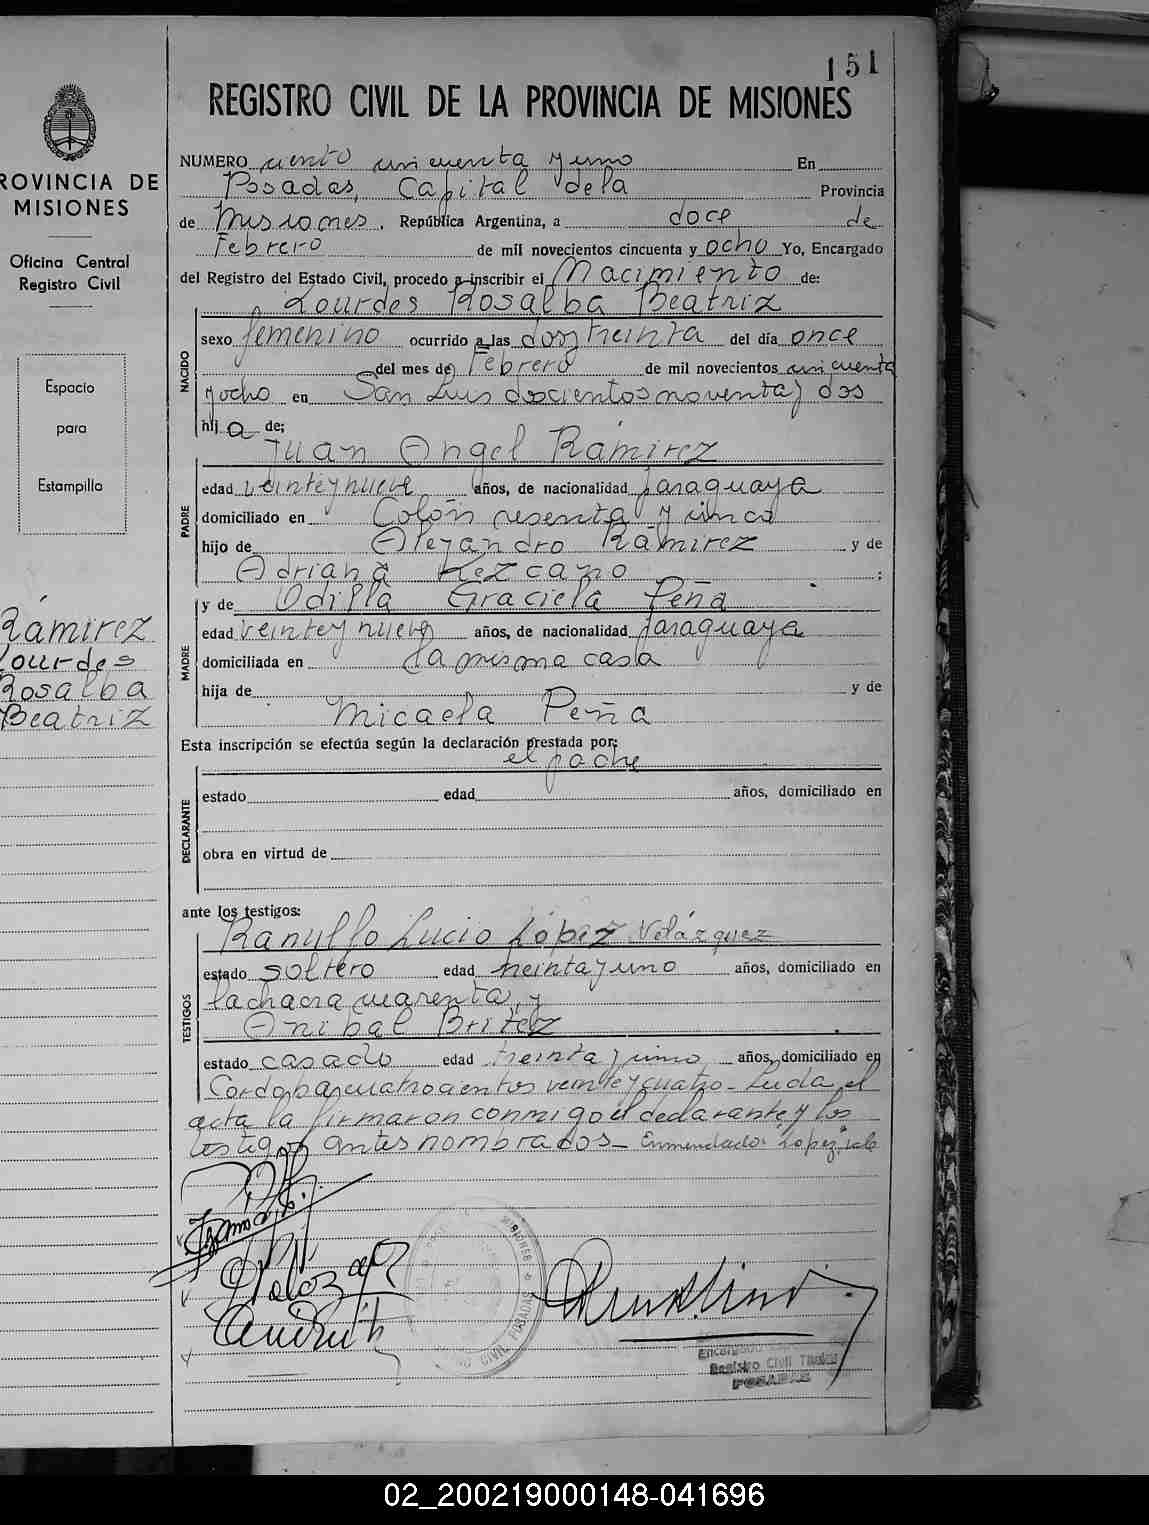 151
REGISTRO CIVIL DE LA PROVINCIA DE MISIONES
PROVINCIA DE
MISIONES
Oficina Central
Registro Civil
Espacio
para
Estampilla
Ramirez
Lourdes
Rosalba
Beatriz
NUMERO ciento cincuenta y uno En
Posadas, Capital dela Provincia
de Misiones. República Argentina, a doce de
Febrero de mil novecientos cincuenta y ocho Yo, Encargado
del Registro del Estado Civil, procedo a inscribir el Nacimiento de:
Lourdes Rosalba Beatriz
NACIDO
sexo femenino ocurrido a las dos, treinta del día once
del mes de Febrero de mil novecientos cincuenta
yocho en San Luis doscientos noventa y dos
hij a de:
Juan Angel Ramirez
PADRE
edad veinteynueve años, de nacionalidad paraguaya
domiciliado en Colón sesenta y cinco
hijo de Alejandro Ramirez y de
Adriana Lezcano ;
y de Odilla Graciela Peña
MADRE
edad veinteynueve años, de nacionalidad paraguaya
domiciliada en la misma casa
hija de y de
Micaela Peña
Esta inscripción se efectúa según la declaración prestada por:
el padre
DECLARANTE
estado edad años, domiciliado en
obra en virtud de
ante los testigos:
Ranulfo Lucio López Velázquez
TESTIGOS
estado soltero edad treintayuno años, domiciliado en
lachacra cuarenta, y
Anibal Britez
estado casado edad treinta y uno años, domiciliado en
Cordoba cuatrocientos veinteycuatro- Leida el
acta la firmaron conmigo el declarante y los
testigos antes nombrados- Enmendado: "López", vale
REGISTRO CIVIL POSADAS MISIONES
Encargado
Registro Civil Titular
POSADAS
02_200219000148-041696